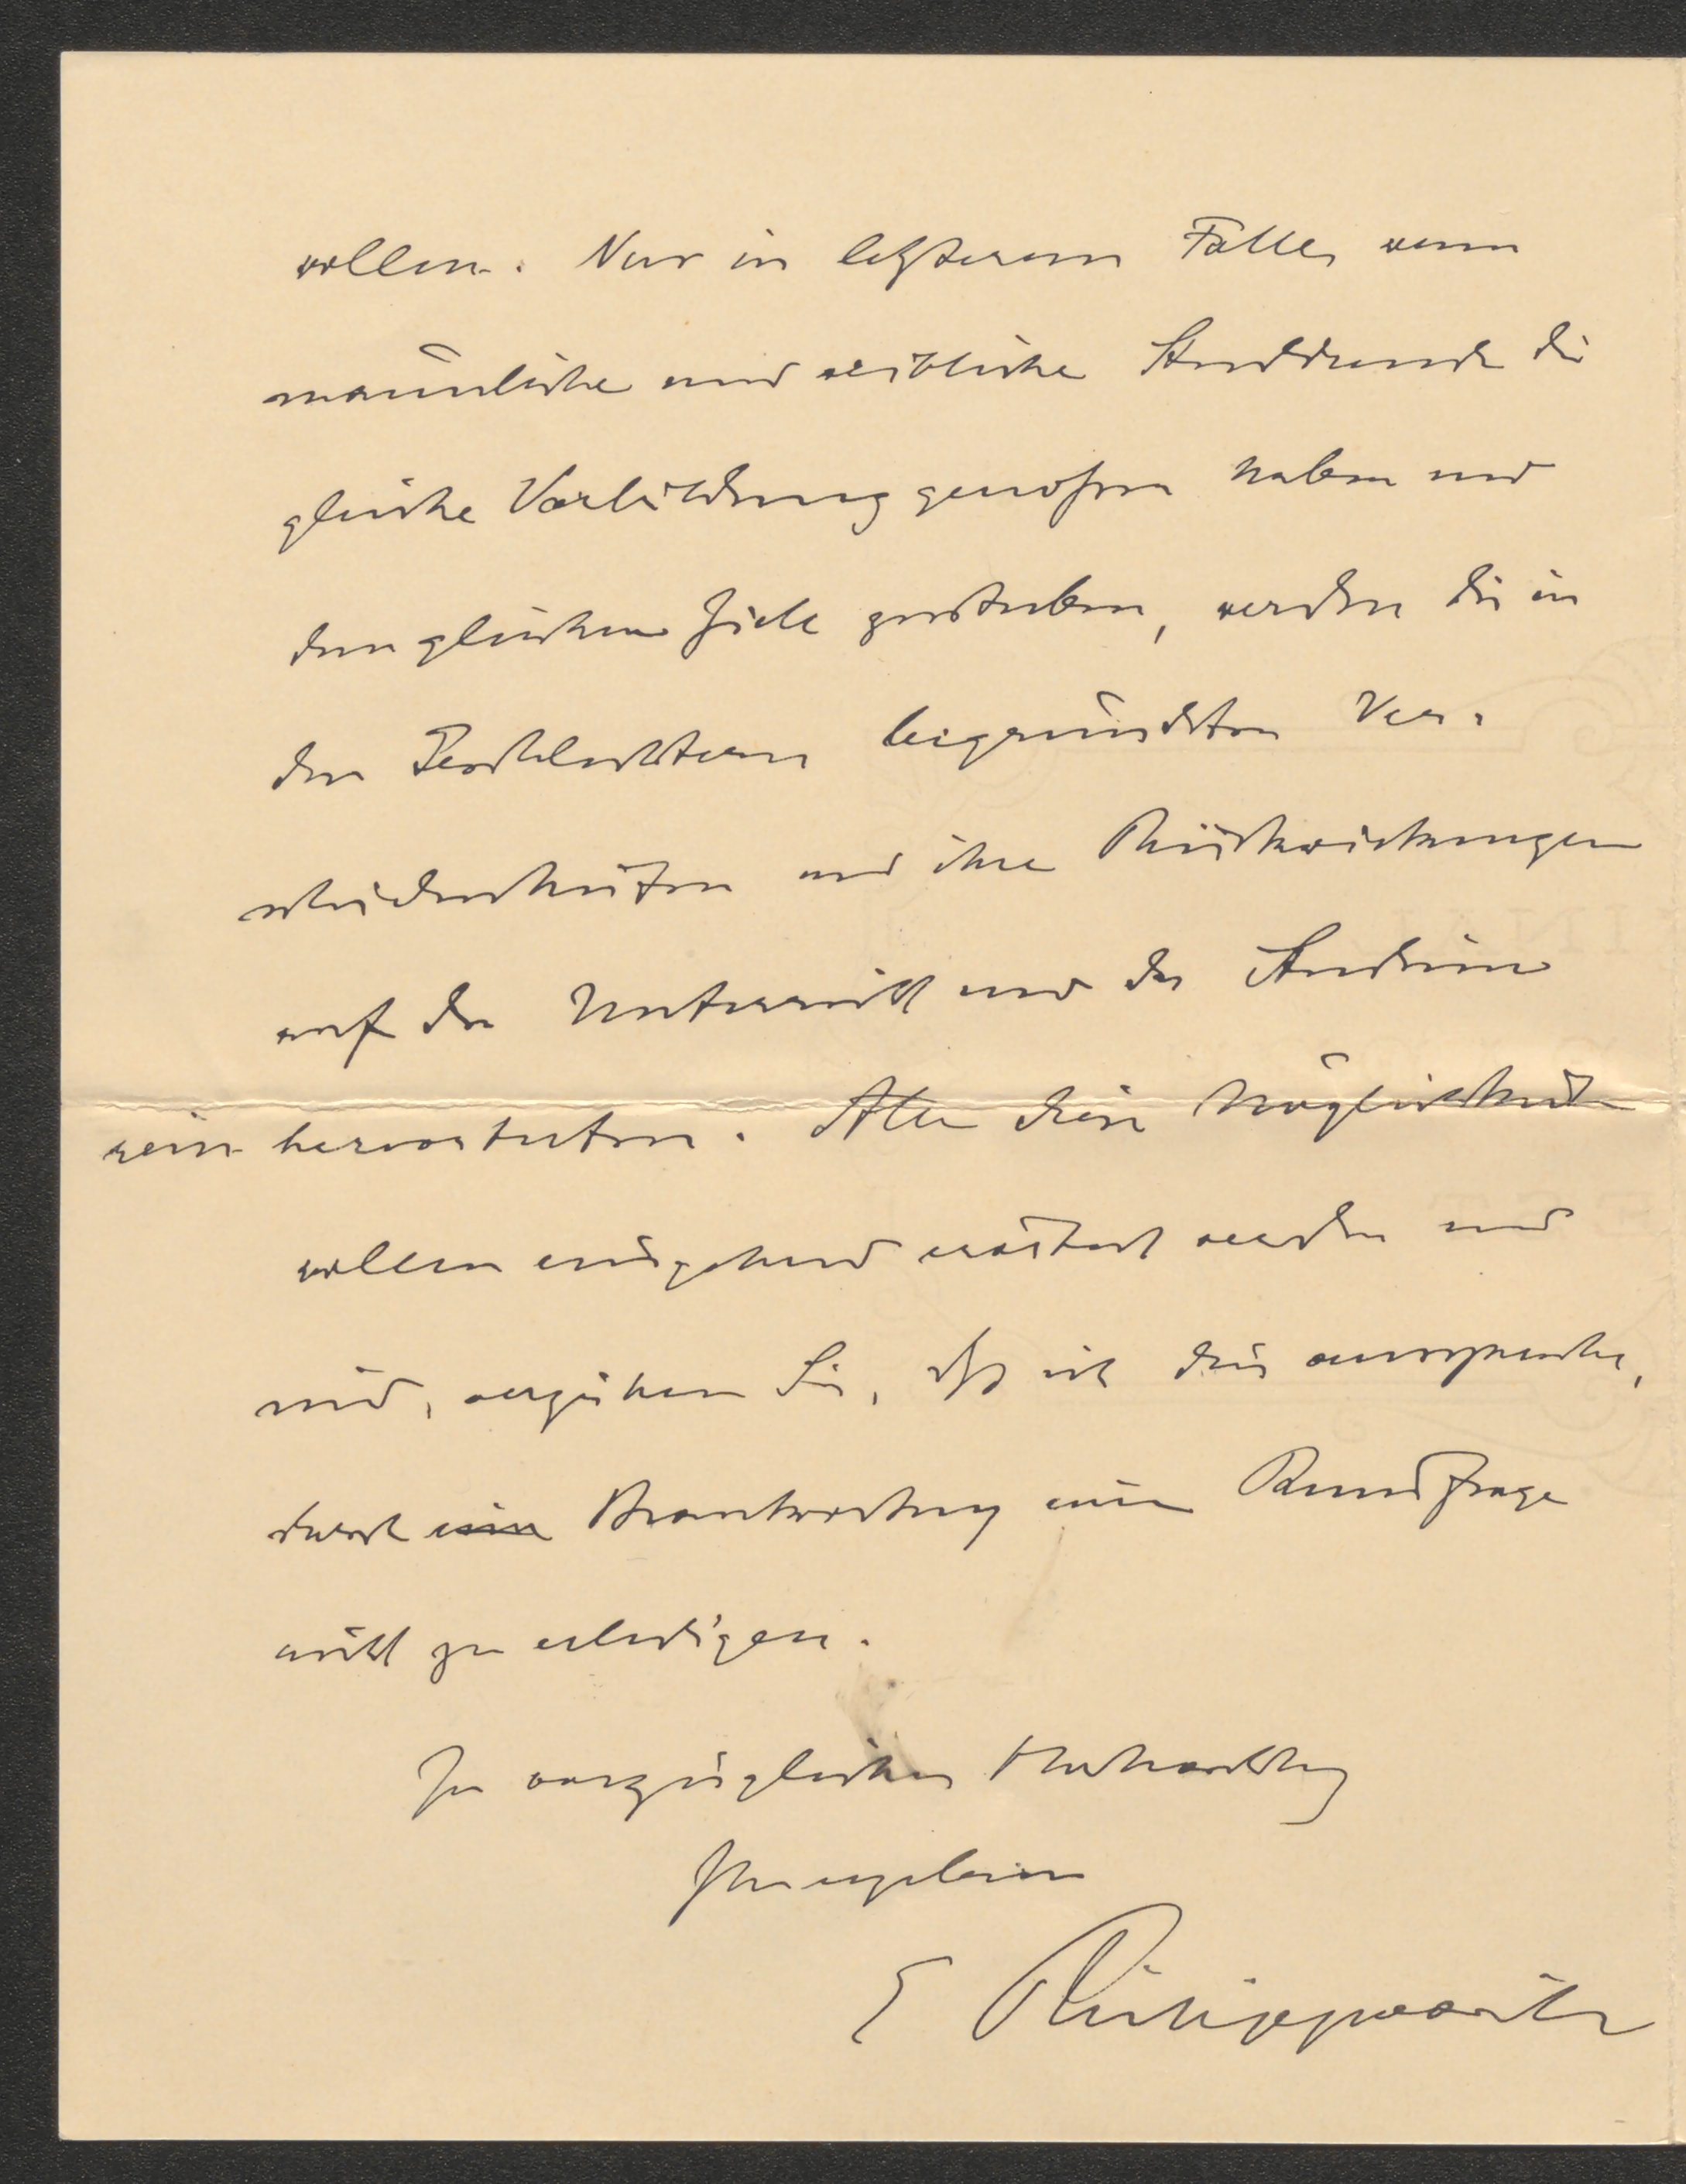 wollen. Nur in letzterem Falle, wenn
männliche und weibliche Studierende die
gleiche Vorbildung genossen haben und
dem gleichen Ziele zustreben, werden die in
den Geschlechtern begründeten Ver-
schiedenheiten und ihre Rückwirkungen
auf den Unterricht und das Studium
rein hervortreten. Alle diese Möglichkeiten
wollen eingehend erörtert werden und
sind, verzeihen Sie, daß ich dies ausspreche,
durch eine Beantwortung einer Rundfrage
nicht zu erledigen.
In vorzüglicher Hochachtung
Ihr ergebener
E Philippovich